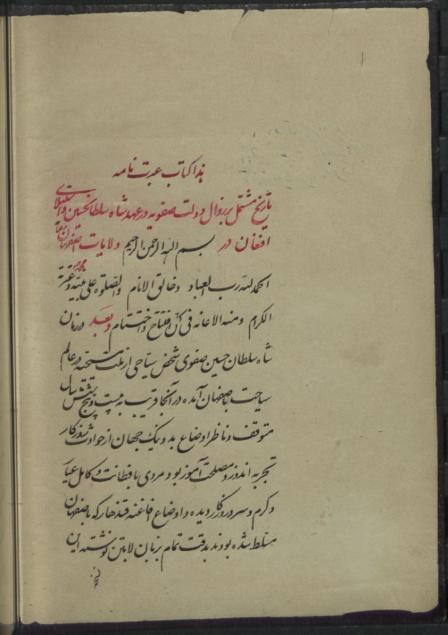 هذا کتاب عبرت نامه
تاریخ مشتمل بر زوال دولت صفویه در عهد شاه سلطانحسین و استیلای
افغان در بسم الله الرحمن الرحیم ولایات اصفهان
الحمد لله رب العباد و خالق الانام والصلوة علی نبیه و عترته
الکرام و منه الاعانه فی کل افتتاح و اختتام و بعد در زمان
شاه سلطان حسین صفوی شخص سیاحی از ملت مسیحیه در عالم
سیاحت باصفهان آمده در آنجا قریب به بیست و پنج شش سال
متوقف و ناظر اوضاع بد و نیک جهان از حوادث روزگار
تجربه اندوز و مصلحت آموز بود مردی بافطانت و کامل عیار
و گرم و سرد روزگار دیده و اوضاع افاغنه قندهار که باصفهان
مسلط شده بودند بدقت تمام بزبان لاتین نوشته این